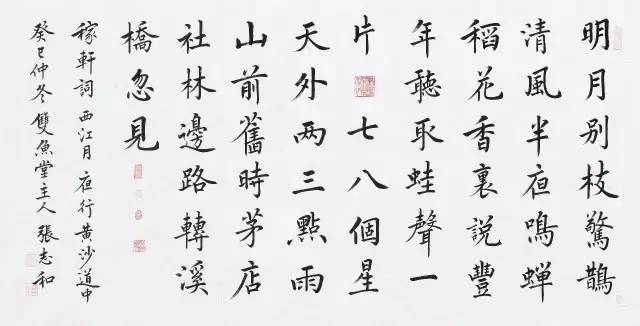 明月别枝驚鵲
清風半夜鳴蟬
稻花香裏説豐
年聽取蛙聲一
片 七八個星
天外两三點雨
山前舊時茅店
社林邊路轉溪
橋忽見
稼軒詞 西江月 夜行黄沙道中
癸巳仲冬雙魚堂主人張志和